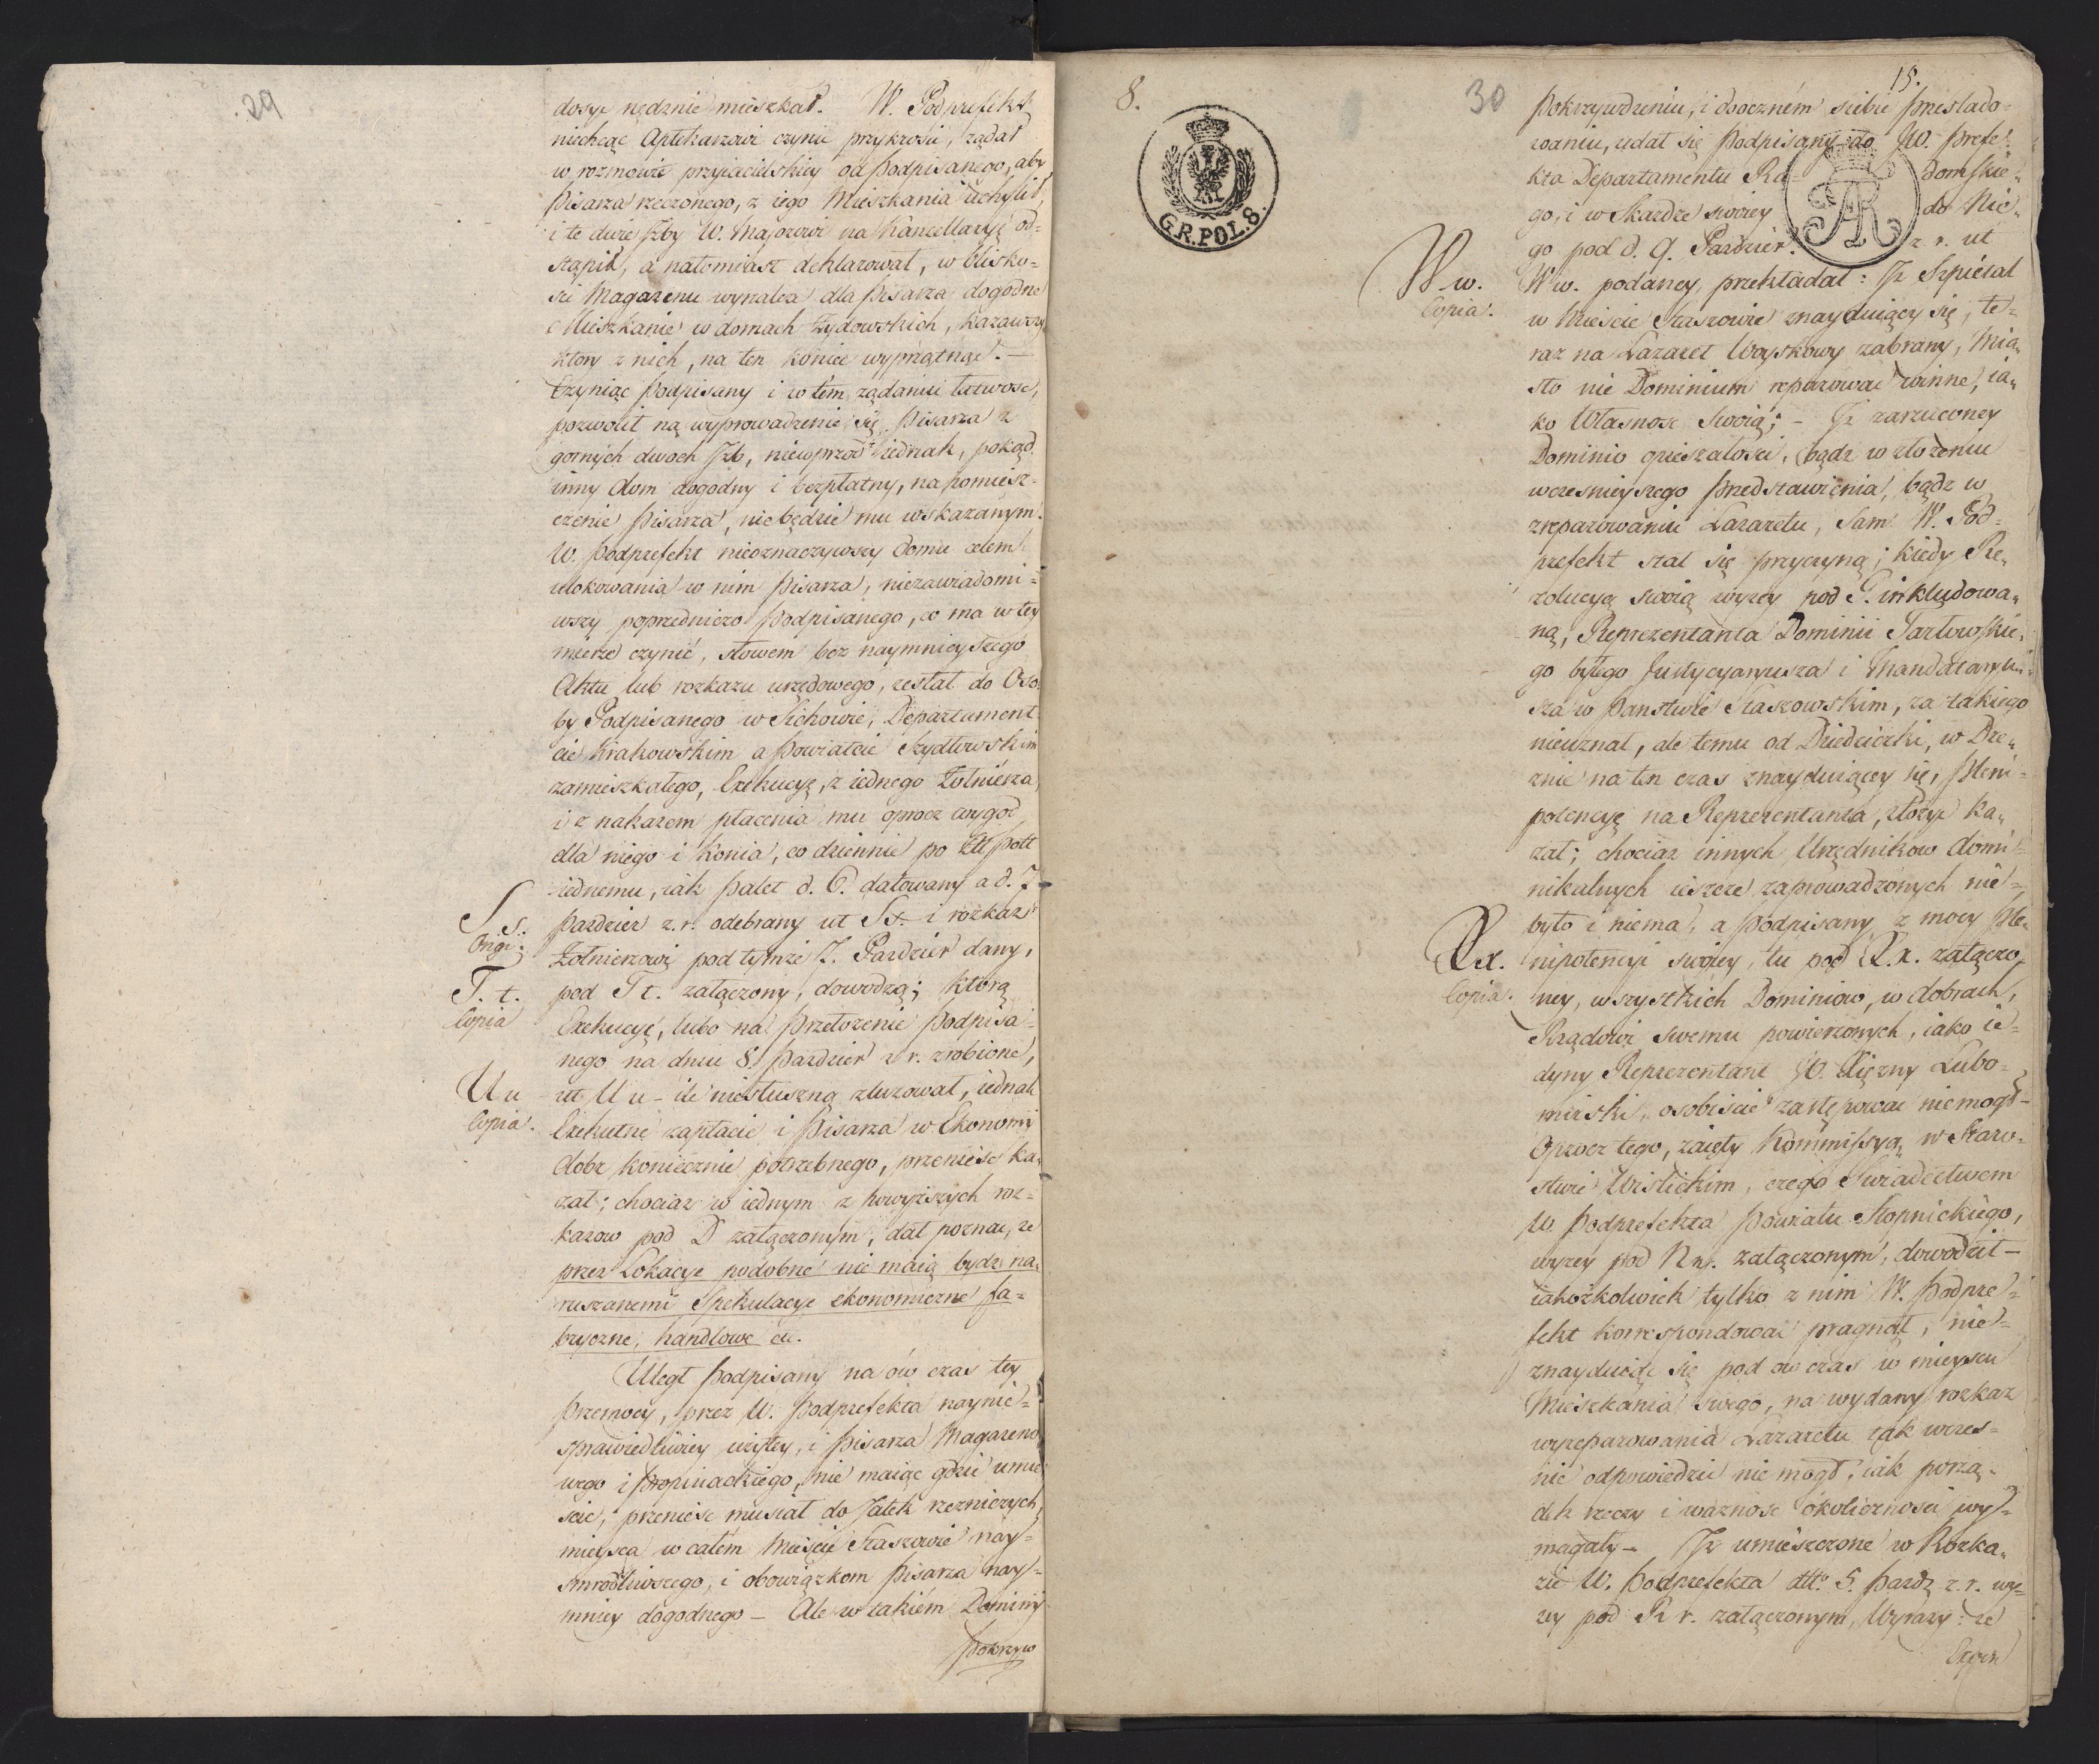 29
dosyc nędznie mieszkał. W. Podprefekt
niechcąc Aptekarzowi czynic przykrosci, ządał
w rozmowie przyiacielskiey od Podpisanego, aby
Pisarza rzeczonego, z iego Mieszkania uchylił,
i te dwie Jzby W. Majorowi na Kancellaryę od=
stąpił, a natomiast deklarował, w blisko=
sci Magazenu wynalezc dla Pisarza dogodne
Mieszkanie w domach Zydowskich, kazawszy
ktory z nich, na ten koniec wyprzątnąc. —
Czyniąc Podpisany i w tem ządaniu łatwosc,
pozwolił na wyprowadzenie się Pisarza z
gornych dwoch Jzb, niewprzod iednak, pokąd
inny dom dogodny i bezpłatny, na pomiesz=
czenie Pisarza, niebędzie mu wskazanym.
W. Podprefekt nieoznaczywszy domu celem
ulokowania w nim Pisarza, niezawiadomi=
wszy poprzedniczo Podpisanego, co ma w tey
mierze czynić, słowem bez naymnieyszego
Aktu lub rozkazu urzędowego, zesłał do Oso=
by Podpisanego w Sichowie, Departament
cie Krakowskim a Powiatcie Szydłowskim
zamieszkałego, Exekucyę, z iednego Zołnierza
i z nakazem płacenia mu oprocz wygod
dla niego i konia, co dziennie po Złł połt
iednemu, iak palet d. 6. datowany a d. 7
S s.
Orig:
Pazdzier z. r. odebrany ut Ss. i rozkaz
Zołnierzowi pod tymze 7. Pazdzier dany,
T. t.
Copia
pod Tt. załączony, dowodzą; ktorą
Exekucyę, lubo na Przełozenie Podpisa=
nego na dniu 8. Pazdzier z r. zrobione,
U u
Copia.
ut U u - ile niesłuszną zluzował, iednak
Exekutnę zapłacic i Pisarza w Ekonomij
dobr koniecznie potrzebnego, przeniesc ka=
zał; chociaz w iednym z powyzszych roz=
kazow pod D załączonym, dał poznac, ze
przez Lokacye podobne nie maią bydz na=
ruszanemi Spekulacye ekonomiczne fa=
bryczne, handlowe etc.
Uległ Podpisany na ów czas tey
Przemocy, przez W. Podprefekta naynie=
sprawiedliwiey uzytey, i Pisarza Magazeno=
wego i Propinackiego, nie maiąc gdzie umie
scic, przeniesc musiał do Jatek rzezniczych,
mieysca w całem Miescie Staszowie nay=
smrodliwszego, i obowiązkom Pisarza nay=
mniey dogodnego — Ale w takiém Dominij
Pokrzyw
8.
G.R.POL.8.
30
15.
Pokrzywdzeniu, i doocznem siebie Przeslado=
waniu, udał się Podpisany do JW. Prefe=
kta Departamentu Ra= domskie=
go, i w Skardze swoiey do Nie=
go pod d. 9. Pazdzier. z r. ut
W w.
Copia.
Ww. podaney, przekładał: Jz Szpital
w Miescie Staszowie znayduiący się, te=
raz na Lazaret Woyskowy zabrany, Mia=
sto nie Dominium reparowac winne, ia=
ko Własnosc swoią; - Jz zarzuconey
Dominio opieszałosci, bądz w złozeniu
wczesnieyszego Przedstawienia, bądz w
zreparowaniu Lazaretu, sam W. Pod=
prefekt stał się przyczyną; kiedy Re=
zolucyą swoią wyzey pod G. inkludowa=
ną, Reprezentanta Dominii Tarłowskie=
go byłego Justycyaryusza i Mandataryu=
sza w Panstwie Staszowskim, za takiego
nieuznał, ale temu od Dziedziczki, w Dre=
znie na ten czas znayduiącey się, Pleni=
potencyę na Reprezentanta, złozyc ka=
zał; chociaz innych Urzędnikow domi=
nikalnych ieszcze zaprowadzonych nie=
było i niema, a Podpisany z mocy Ple=
X x.
Copia.
nipotencyi swoiey, tu pod X.x. załączo=
ney, wszystkich Dominiow, w dobrach,
Rządowi swemu powierzonych, iako ie=
dyny Reprezentant JO. Xięzny Lubo=
mirski, osobiscie zastępowac niemogł —
Oprocz tego, zaięty Kommissyą w Staro=
stwie Wislickim, czego Swiadectwem
W. Podprefekta Powiatu Stopnickiego,
wyzey pod N n. załączonym, dowodził —
iakozkolwiek tylko z nim W. Podpre=
fekt korrespondowac pragnął, nie=
znayduiąc się pod ow czas w mieyscu
Mieszkania swego, na wydany rozkaz
wyreparowania Lazaretu tak wczes=
nie odpowiedzic nie mogł, iak porzą=
dek rzeczy i waznosc okolicznosci wy=
magały — Jz umieszczone w Rozka=
zie W. Podprefekta dtto 5. Pazdz z. r. wy=
zey pod R r. załączonym, Wyrazy: ze